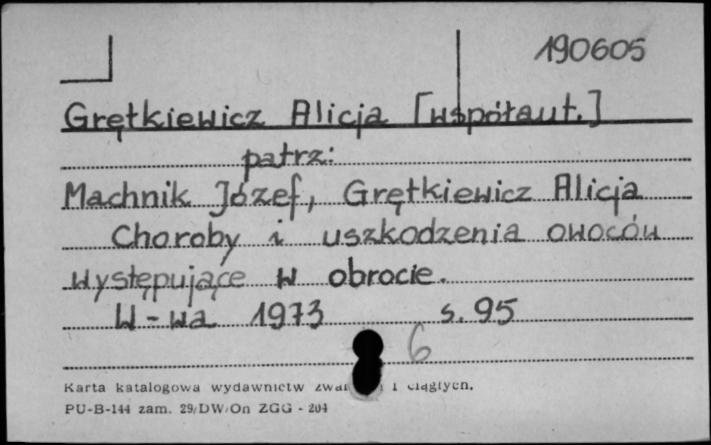 190605
Grętkiewicz Alicja [współaut.]
patrz:
Machnik Józef, Grętkiewicz Alicja
Choroby i uszkodzenia owoców
występujące w obrocie.
W-wa 1973 s. 95
6
Karta katalogowa wydawnictw i ciągłych.
PU-B-144 zam. 29/DW/On ZGG - 204